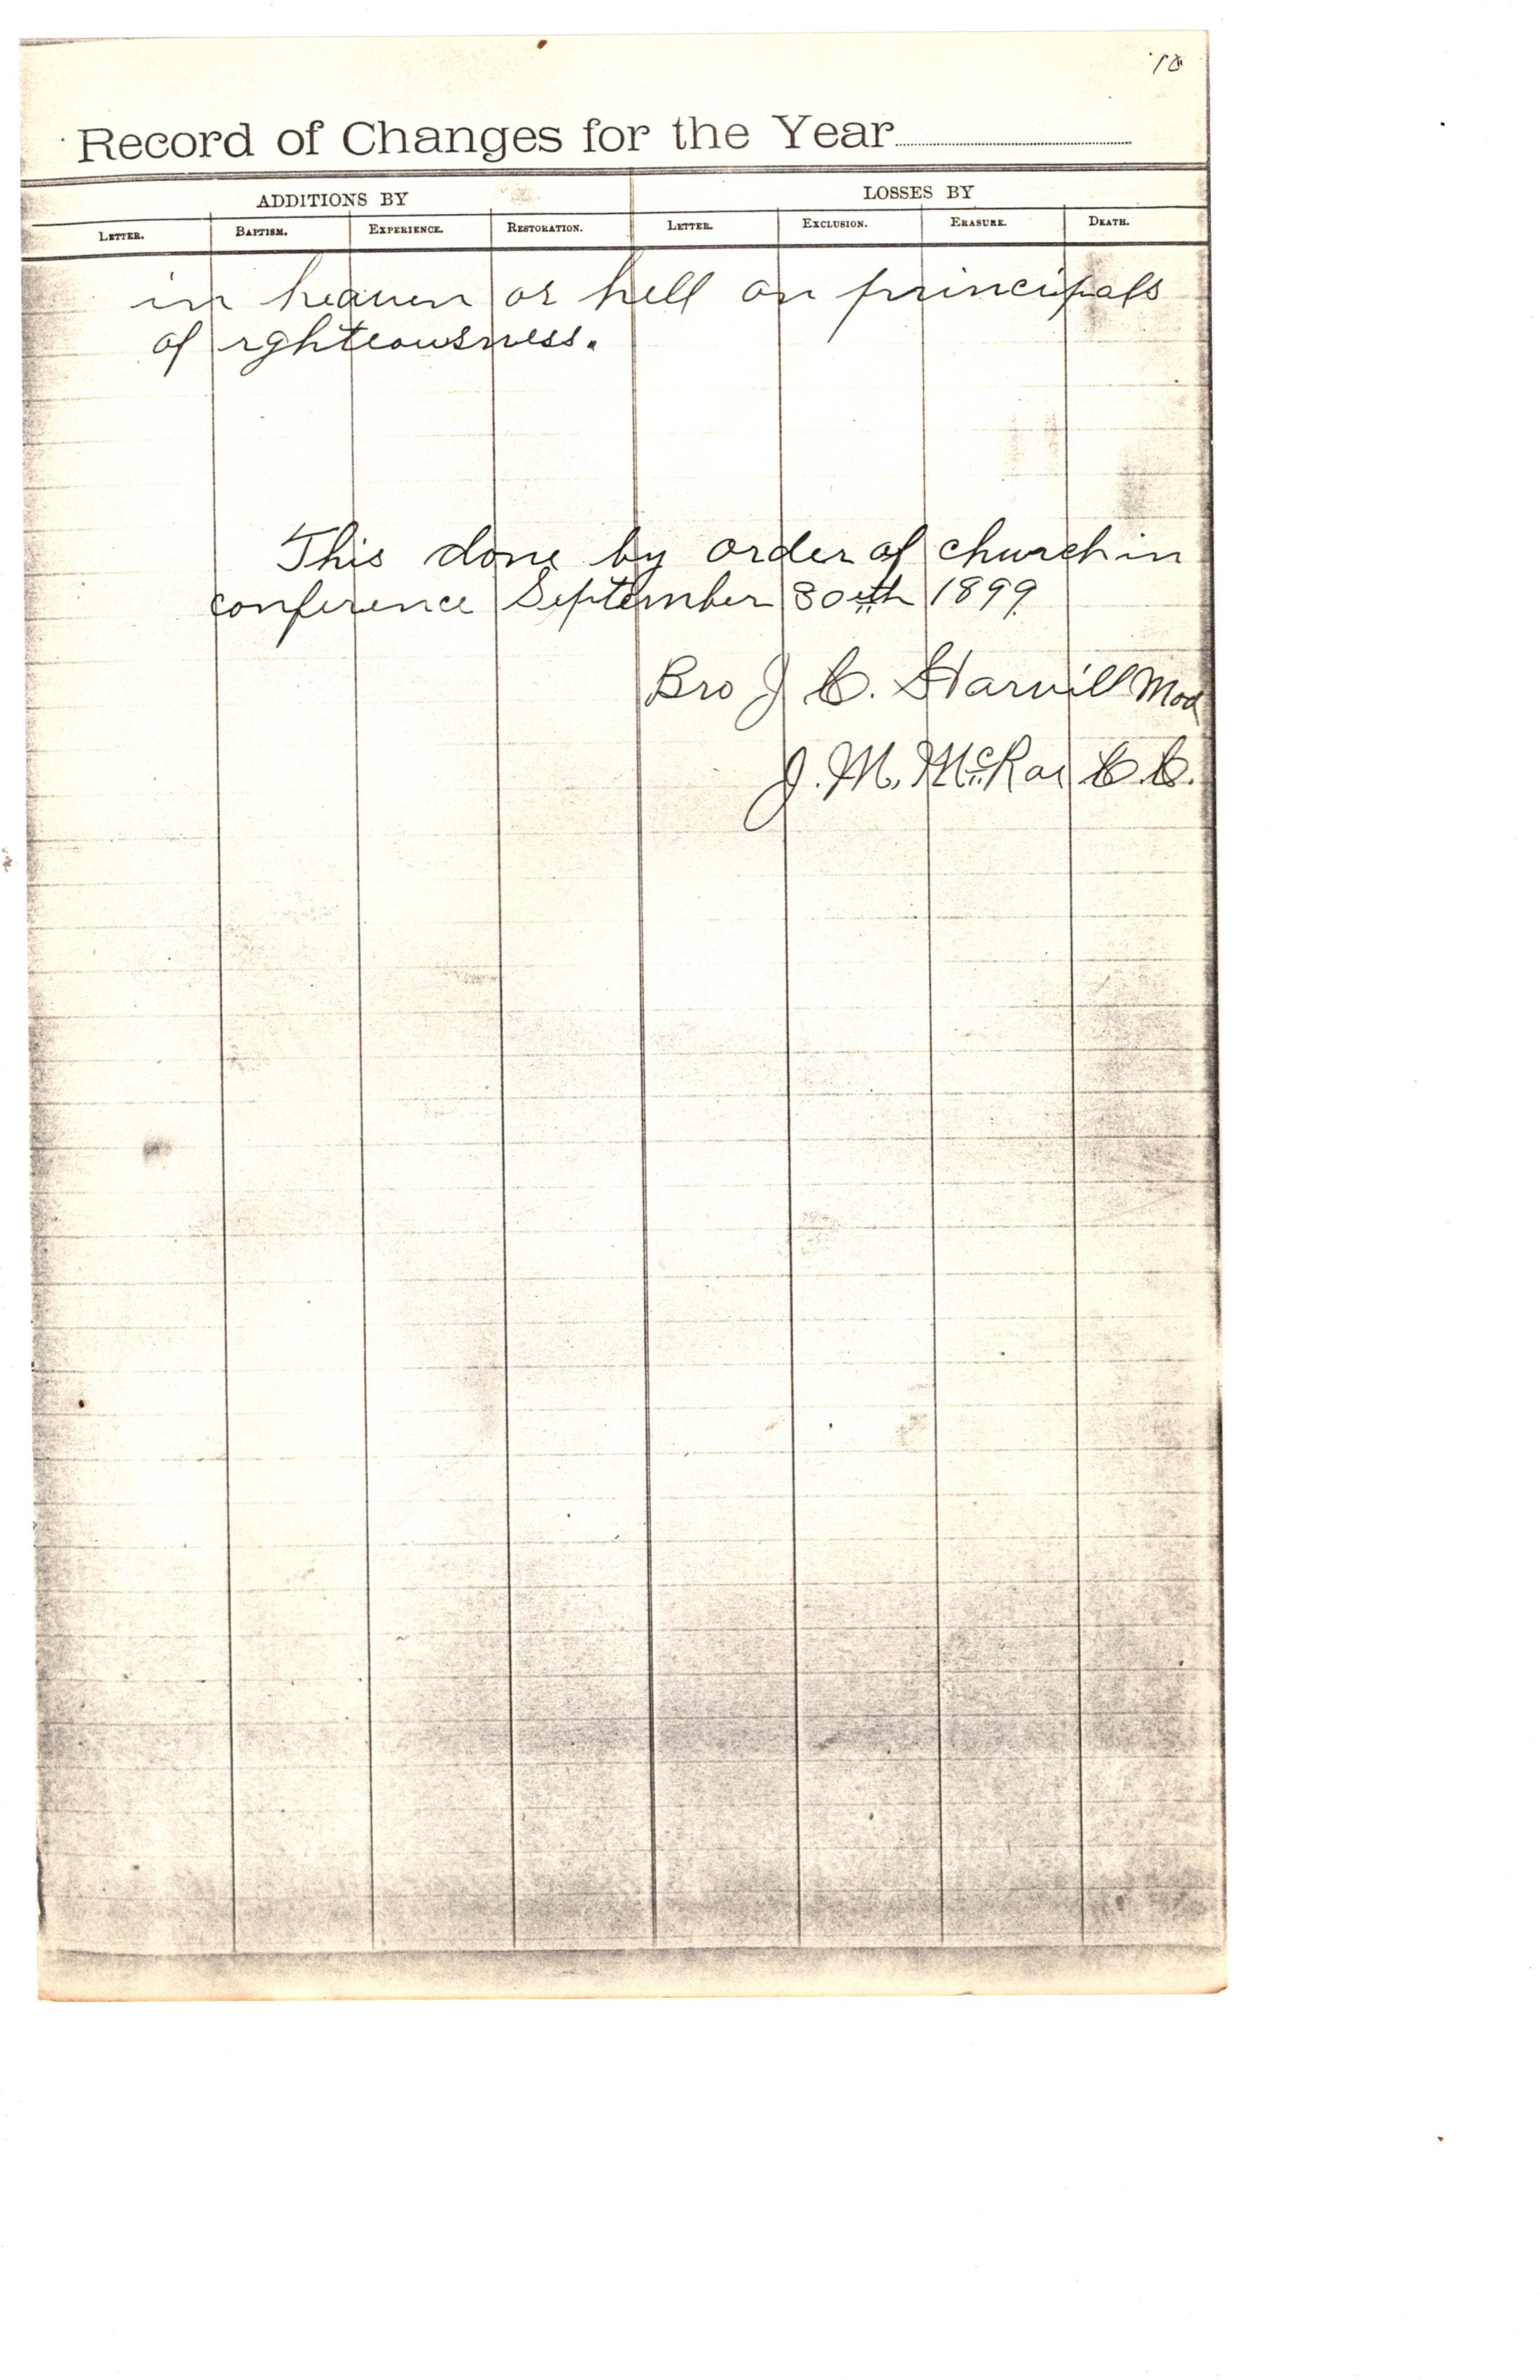 10
Record of Changes for the Year
ADDITIONS BY LOSSES BY
LETTER. BAPTISM. EXPERIENCE. RESTORATION. LETTER. EXCLUSION. ERASURE. DEATH.
in heaven or hell on principals
of rghteousness.
This done by order of church in
conference September 30th 1899
Bro J C. Harvill Mod
J. M. McRae C. C.